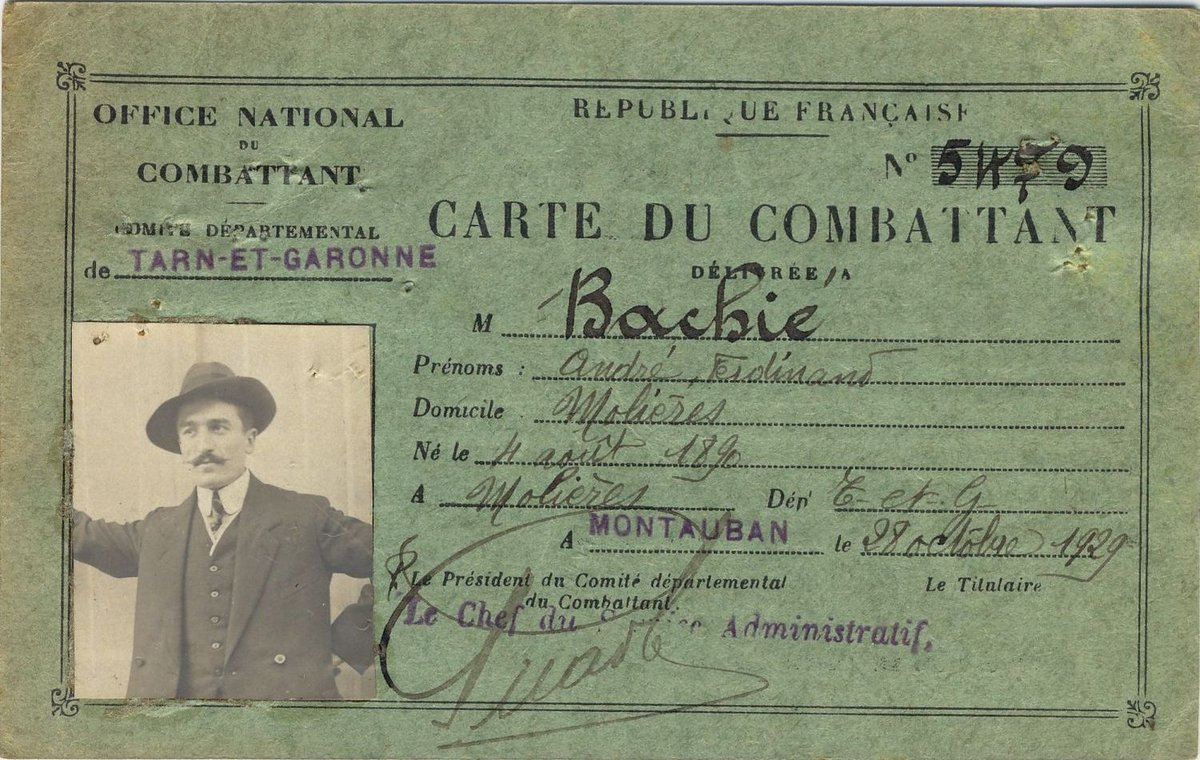 OFFICE NATIONAL
DU
COMBATTANT
COMITÉ DÉPARTEMENTAL
de TARN-ET-GARONNE
RÉPUBLIQUE FRANÇAISE
Nº 5479
CARTE DU COMBATTANT
DÉLIVRÉE A
M Bachié
Prénoms : André, Ferdinand
Domicile Molières
Né le 4 août 1890
A Molières Dépt T-et-G
A MONTAUBAN le 28 octobre 1929
Le Président du Comité départemental
du Combattant.
Le Titulaire
Le Chef du Service Administratif,